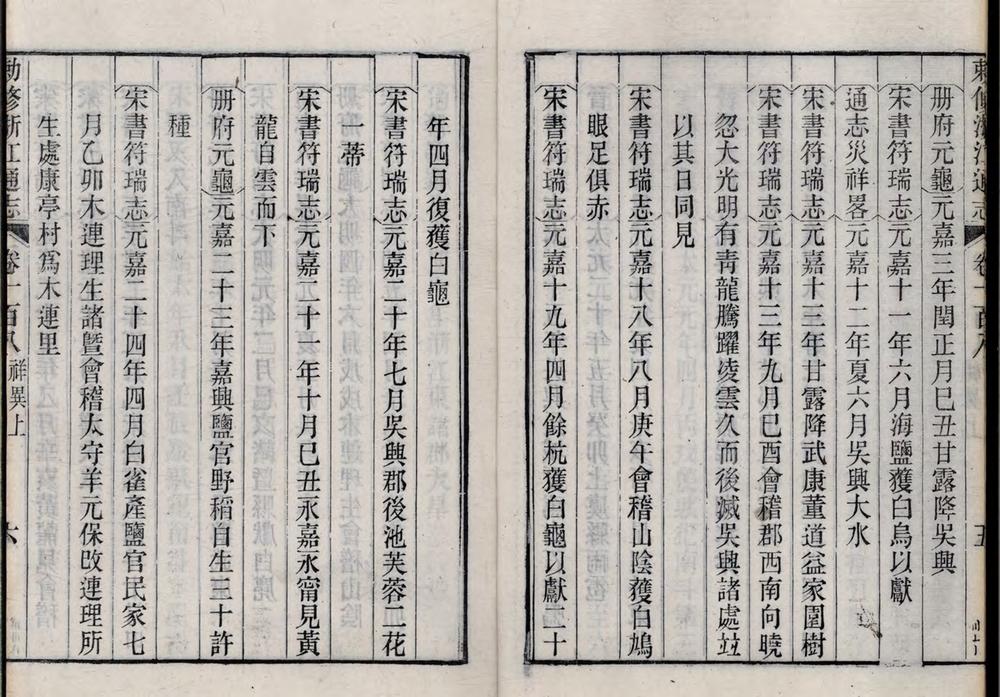 勅修浙江通志 卷一百八 五
册府元龜元嘉三年閏正月巳丑甘露降吳興
宋書符瑞志元嘉十一年六月海鹽獲白烏以獻
通志災祥畧元嘉十二年夏六月吳興大水
宋書符瑞志元嘉十三年甘露降武康董道益家園樹
宋書符瑞志元嘉十三年九月巳酉會稽郡西南向曉
忽大光明有靑龍騰躍凌雲久而後滅吳興諸處竝
以其日同見
宋書符瑞志元嘉十八年八月庚午會稽山陰獲白鳩
眼足俱赤
宋書符瑞志元嘉十九年四月餘杭獲白龜以獻二十
年四月復獲白龜
宋書符瑞志元嘉二十年七月吳興郡後池芙蓉二花
一蒂
宋書符瑞志元嘉二十一年十月巳丑永嘉永甯見黃
龍自雲而下
册府元龜元嘉二十三年嘉興鹽官野稻自生三十許
種
宋書符瑞志元嘉二十四年四月白雀產鹽官民家七
月乙卯木連理生諸暨會稽太守羊元保改連理所
生處康亭村爲木連里
勅修浙江通志 卷一百八 祥異上 六